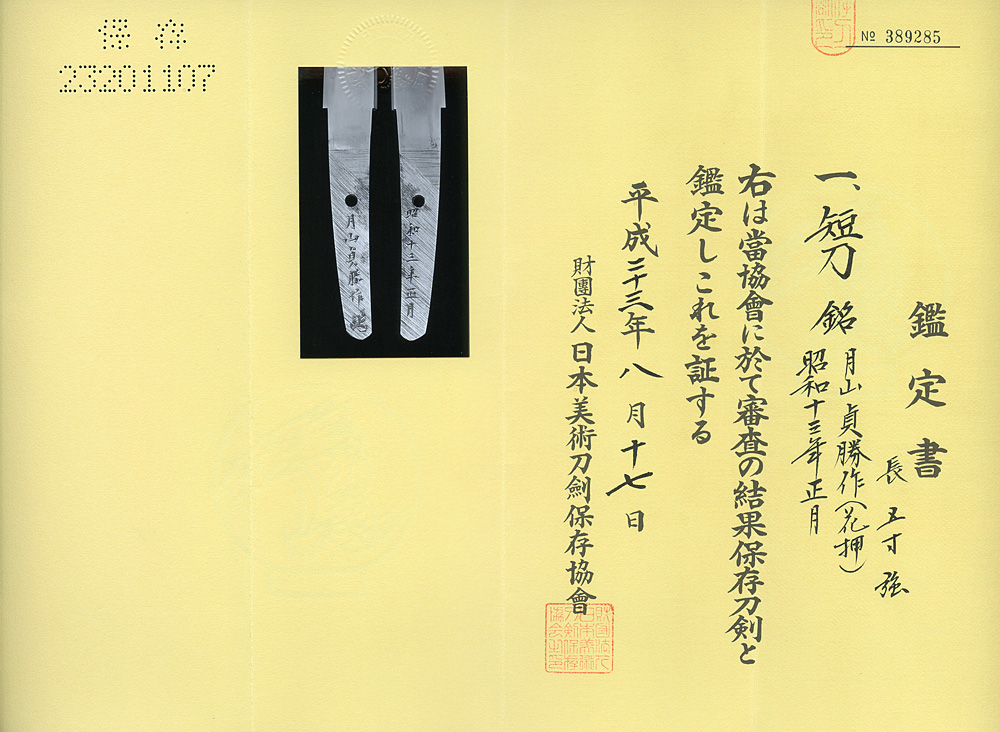 保存
23201107
№ 389285
鑑定書
長 五寸 強
一、短刀 銘 月山貞勝作(花押)
昭和十三年正月
右は當協會に於て審査の結果保存刀剣と
鑑定しこれを証する
平成二十三年八月十七日
財團法人日本美術刀劍保存協會
昭和十三年正月
月山貞勝作